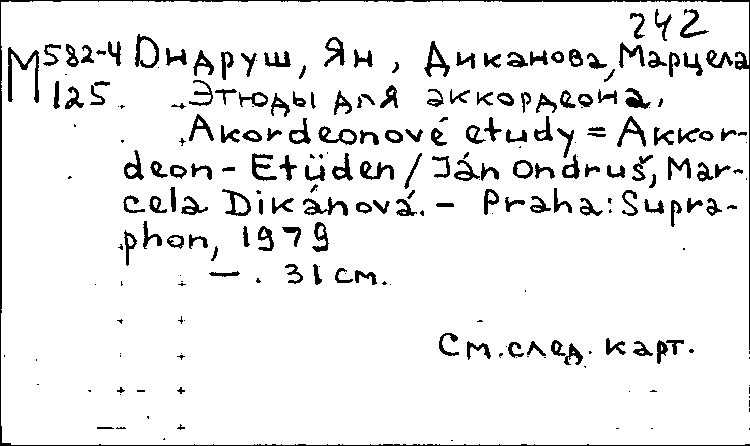 242
М 582-4 Ондруш, Ян, Диканова, Марцела
125 Этюды для аккордеона.
Akordeonové etudy = Akkor-
deon-Etüden / Ján Ondruš, Mar-
cela Dikánová. - Praha: Supra-
phon, 1979
— . 31 см.
См. след. карт.